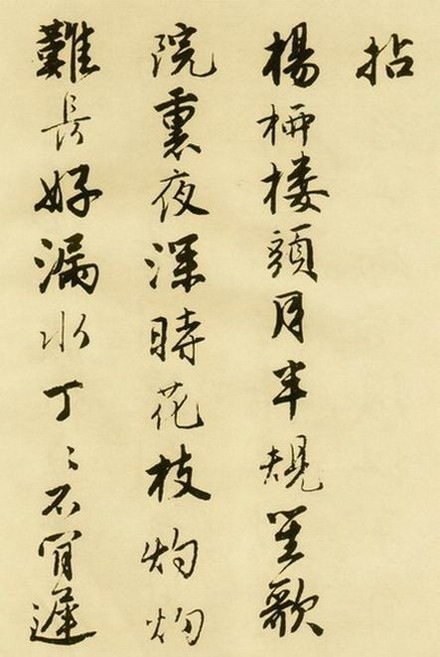 拈
楊柳楼頭月半規笙歌
院裏夜深時花枝灼灼
難長好漏水丁〻不肎遲